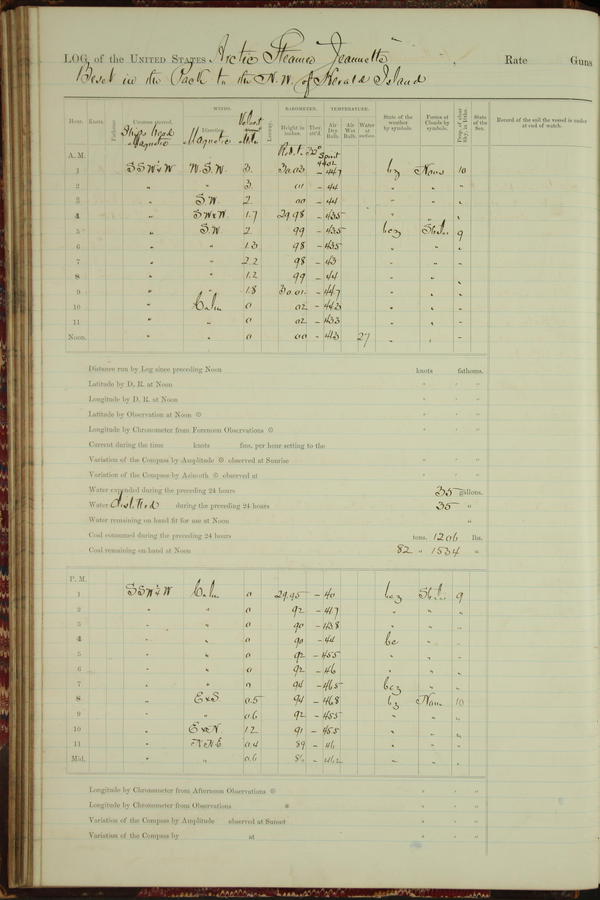 LOG of the UNITED STATES Arctic Steamer Jeannette, Rate Guns
Beset in the Pack to the N.W. of Herald Island
WINDS. BAROMETER. TEMPERATURE.
Hour. Knots. Fathoms. Courses steered. Ships head Magnetic Direction. Magnetic Leeway. Height in inches. Ther. att'd. Air Dry Bulb. Air Wet Bulb. Water at surface. State of the weather by symbols. Forms of Clouds by symbols. Prop. of clear Sky, in 10ths. State of the Sea. Record of the sail the vessel is under at end of watch.
A. M. Red. 32° Spirit 4402
1 SSW¼W W.S.W. 3. 30.03 - 44.7 bz None 10
2 " " 3. 01 - 44 " " "
3 " S.W. 2. 00 - 44 " " "
4 " SW×W 1.7 29.98 - 43.5 " " "
5 " S.W. 2. 99 - 43.5 bcz 9
6 " " 1.3 98 - 43.5 " " "
7 " " 2.2 98 - 43 " " "
8 " " 1.2 99 - 44 " " "
9 " " 1.8 30.01 - 44.7 " " "
10 " Calm 0 02 - 44.3 " " "
11 " " 0 02 - 43.3 " " "
Noon. " " 0 00 - 43 27 " " "
Distance run by Log since preceding Noon knots fathoms.
Latitude by D. R. at Noon ° ' "
Longitude by D. R. at Noon ° ' "
Latitude by Observation at Noon ☉ ° ' "
Longitude by Chronometer from Forenoon Observations ☉ ° ' "
Current during the time knots fms. per hour setting to the
Variation of the Compass by Amplitude ☉ observed at Sunrise ° ' "
Variation of the Compass by Azimuth ☉ observed at ° ' "
Water expended during the preceding 24 hours 35 gallons.
Water distilled during the preceding 24 hours 35 "
Water remaining on hand fit for use at Noon "
Coal consumed during the preceding 24 hours tons. 1206 lbs.
Coal remaining on hand at Noon 82 " 1534 "
P. M.
1 SSW¼W Calm 0 29.95 - 40 bcz 9
2 " " 0 92 - 41.7 " " "
3 " " 0 90 - 43.8 " " "
4 " " 0 90 - 44 bc " "
5 " " 0 92 - 45.5 " " "
6 " " 0 92 - 46 " " "
7 " " 0 94 - 46.5 bcz " "
8 " E×S 0.5 94 - 46.8 bz None 10
9 " " 0.6 92 - 45.5 " " "
10 " E×N 1.2 91 - 45.5 " " "
11 " NNE 0.4 89 - 46 " " "
Mid. " " 0.6 86 - 46.2 " " "
Longitude by Chronometer from Afternoon Observations ☉ ° ' "
Longitude by Chronometer from Observations * ° ' "
Variation of the Compass by Amplitude observed at Sunset ° ' "
Variation of the Compass by at ° ' "